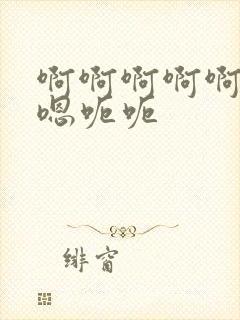 啊啊啊啊啊
嗯呃呃
绯窗